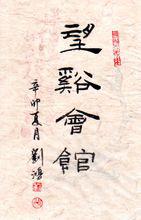 望谿會館
辛卯夏月
劉鴻